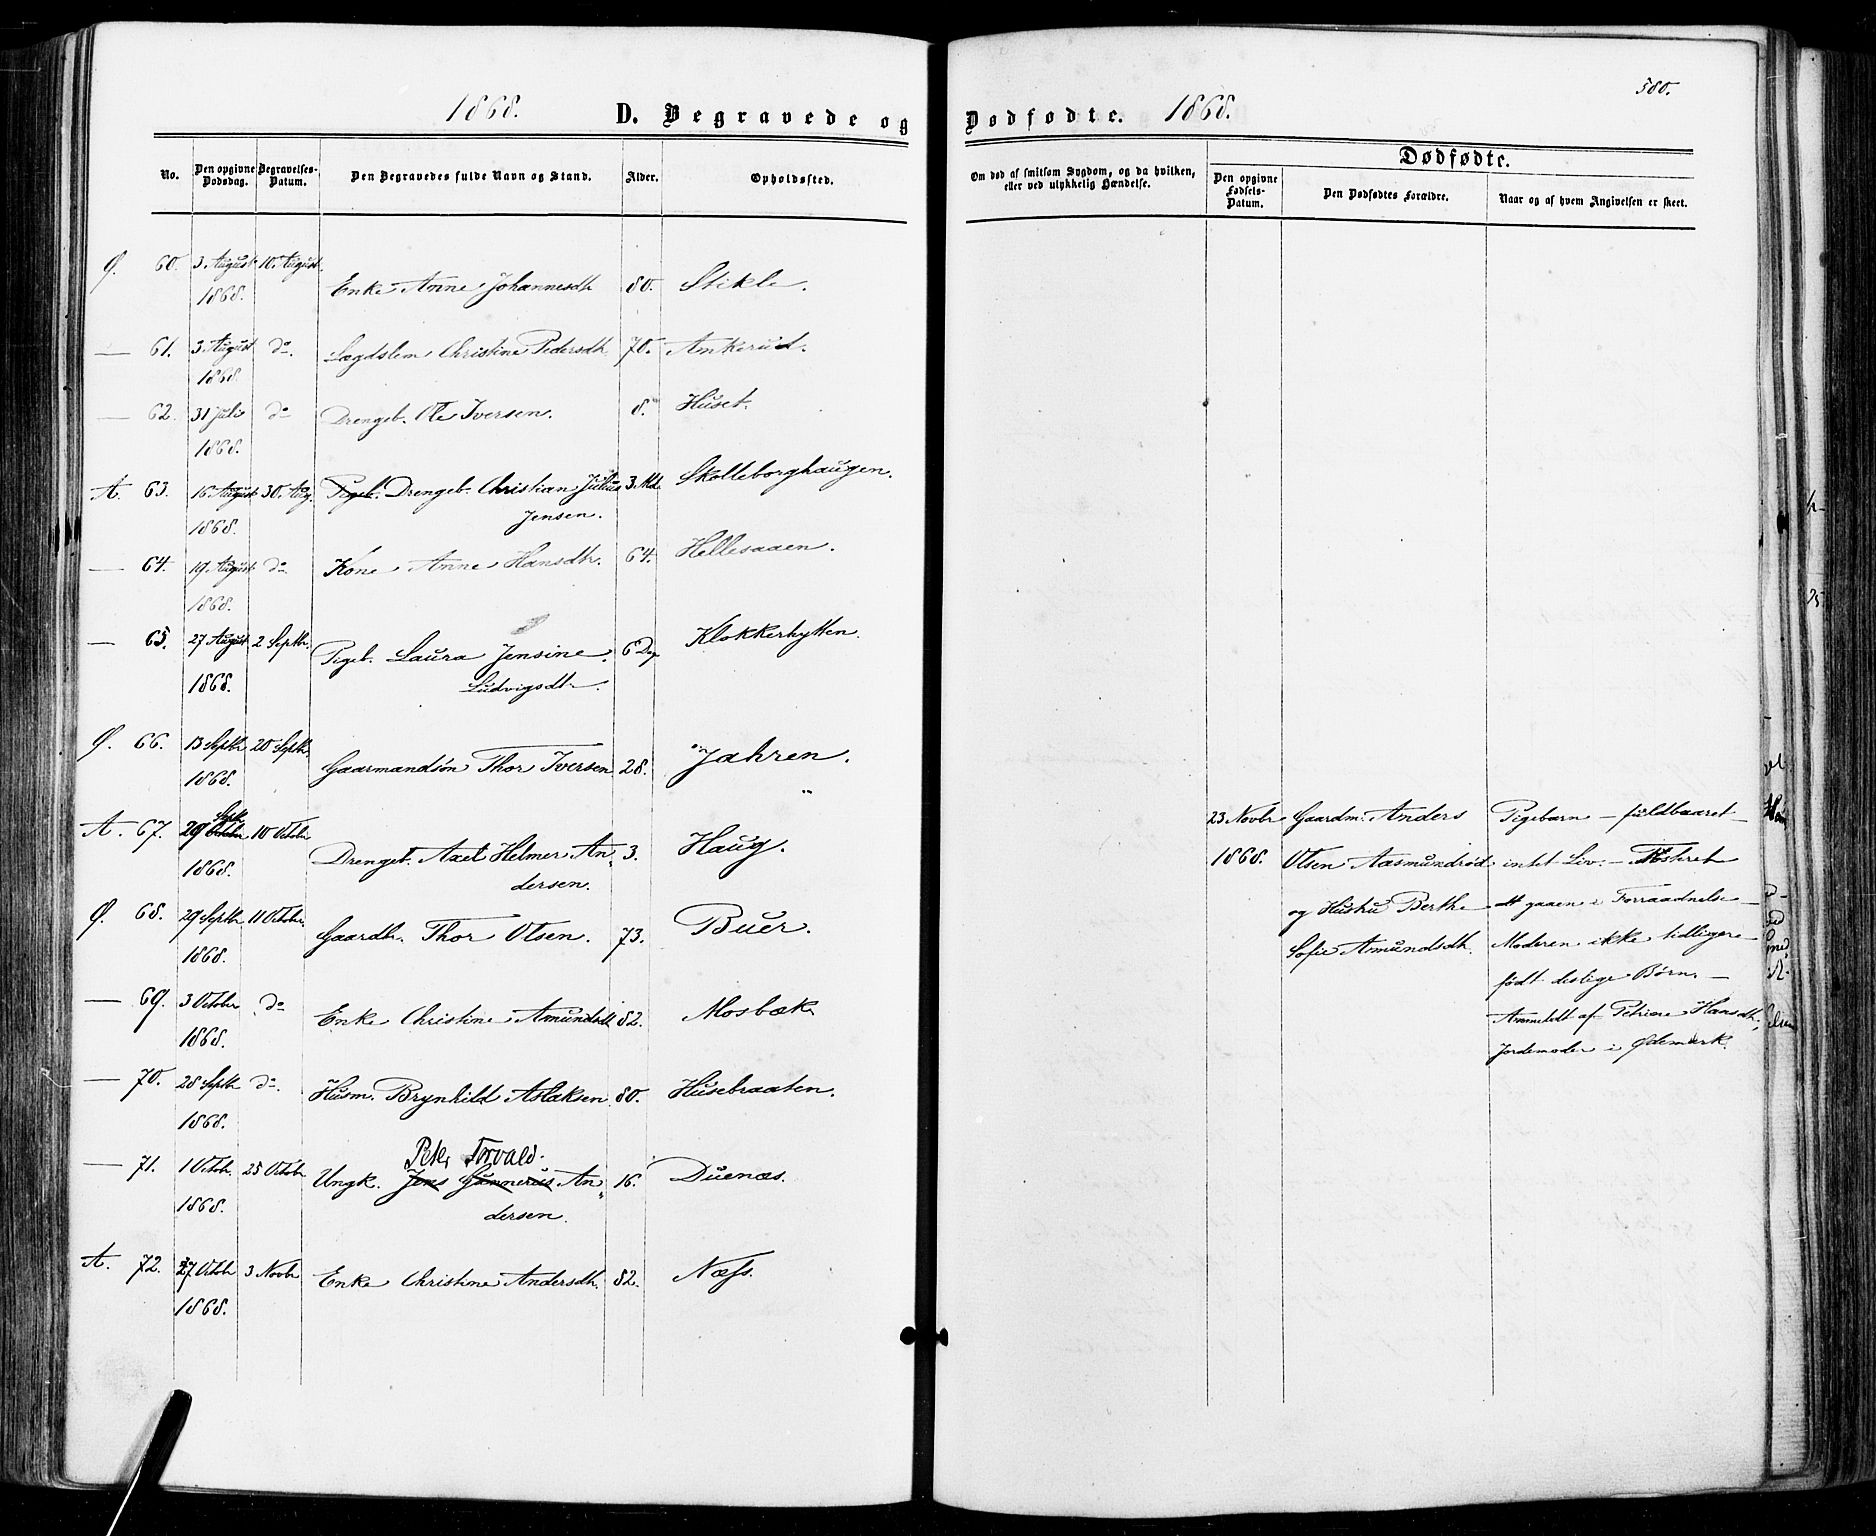 1868. D. Begravede og Dødfødte. 1868. 580.
No. Den opgivne Dødsdag. Begravelses-Datum. Den Begravedes fulde Navn og Stand. Alder. Opholdssted.
Om død af smitsom Sygdom, og da hvilken, eller ved ulykkelig Hændelse.
Dødfødte.
Den opgivne Fødsels-Datum. Den Dødfødtes Forældre. Naar og af hvem Angivelsen er skeet.
Ø. 60. 3. August 10. August
1868. Enke Anne Johannesdtr 80. Stikle.
— 61. 3 August do. Lægdslem Christine Pedersdtr 70. Ankerud.
1868.
— 62. 31 Juli do Drengeb. Ole Iversen. 8. Huset.
1868.
A. 63. 16 August 30. Aug. Pigeb. Drengeb. Christian Julius 3. Md. Skolleborghaugen.
1868. Jensen.
— 64. 19. August do. Kone Anne Hansdtr. 64. Hellesaaen.
1868.
— 65. 27 August 2 Septbr. Pigeb. Laura Jensine 6 Dage Klokkerhytten.
1868. Ludvigsdtr.
Ø. 66. 13 Septbr 20 Septbr.
1868. Gaarmandsøn Thor Iversen 28. Jahren.
A. 67. 29 October Septbr 10 Octobr
1868. Drengeb. Axel Helmer An- 3. Haug.
dersen.
Ø. 68. 29 Septbr 11 Octobr. Gaardbr. Thor Olsen. 73. Buer.
1868.
— 69. 3 Octobr do Enke Christine Amundsdtr 82. Mosbæk
1868.
— 70. 28 Septbr do. Husm. Brynhild Aslaksen 80. Husebraaten.
1868.
Peter Torvald.
— 71. 1 Octob. 25 Octobr Ungk. Jens Gunnerius An- 16. Duenæs.
1868. dersen.
A. 72. 27 Octobr 3 Novbr Enke Christine Andersdtr. 82. Næss.
1868.
23 Novbr Gaardm. Anders Pigebarn — fuldbaaret —
1868. Olsen Aasmundrød intet Liv. — Fosteret
og Hustru Berthe at gaaen i Forraadnelse —
Sofie Amundsdtr. Moderen ikke tidligere
født deslige Børn. —
Anmeldt af Petrine Hansdtr.,
Jordemoder i Ødemark.